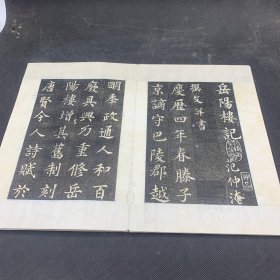 岳陽樓記
范仲淹
撰文并書
慶歷四年春滕子
京謫守巴陵郡越
明奉政通人和百
廢具興乃重修岳
陽樓增其舊制刻
唐賢今人詩賦於